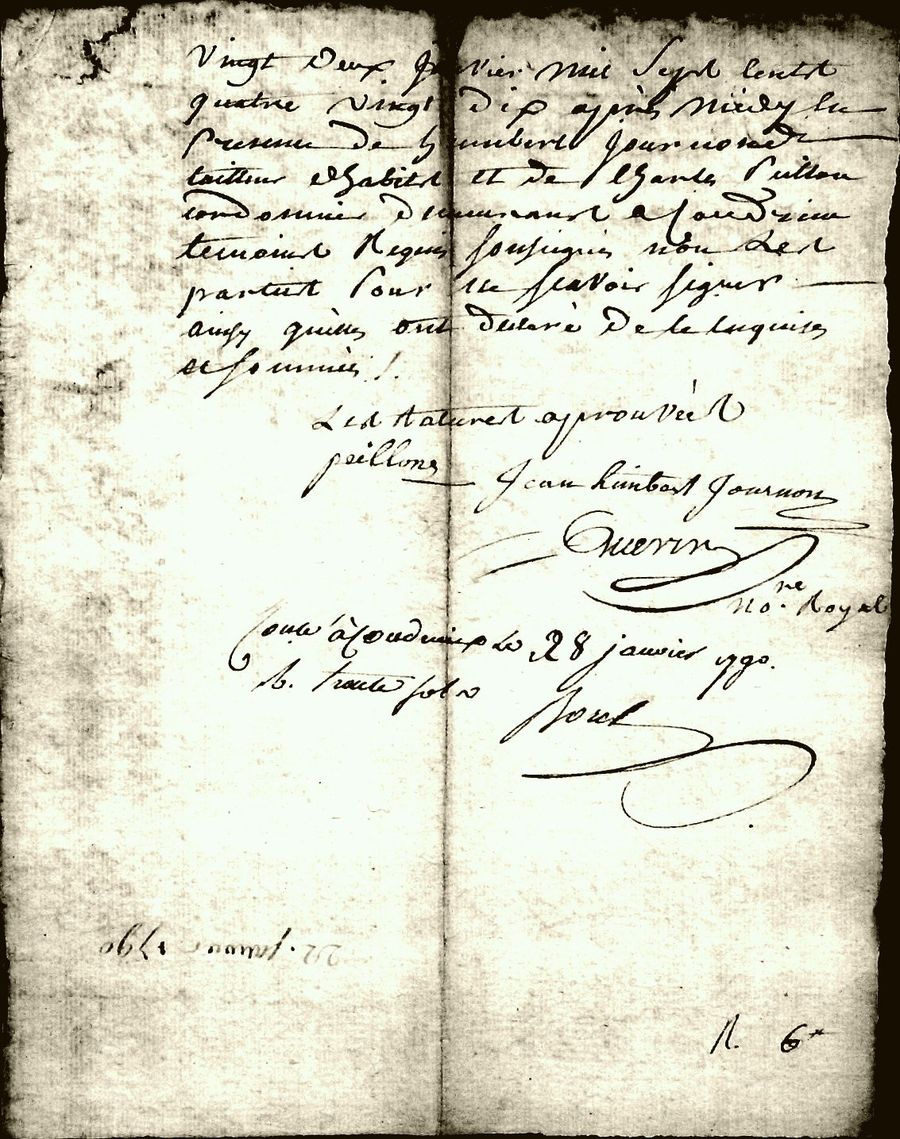 Vingt Deux Janvier Mil Sept Centt
quatre vingt dix après Midy En
Presence de humbert Journond
tailleur dhabits et de Charles Peillon
cordonnier demeurant a
temoinst Requis soussignés non Lest
partiest Pour ne scavoir signer
ainsy quelles ont declaré De ce Enquises
et sommées /.
Lest Raturest aprouvéest
peillon
Jean himbert Journon
Guerin
No.re Royal
Conlé à le 28 janvier 1790.
R. trente sols
Borel
22. janvier 1790
R. 6